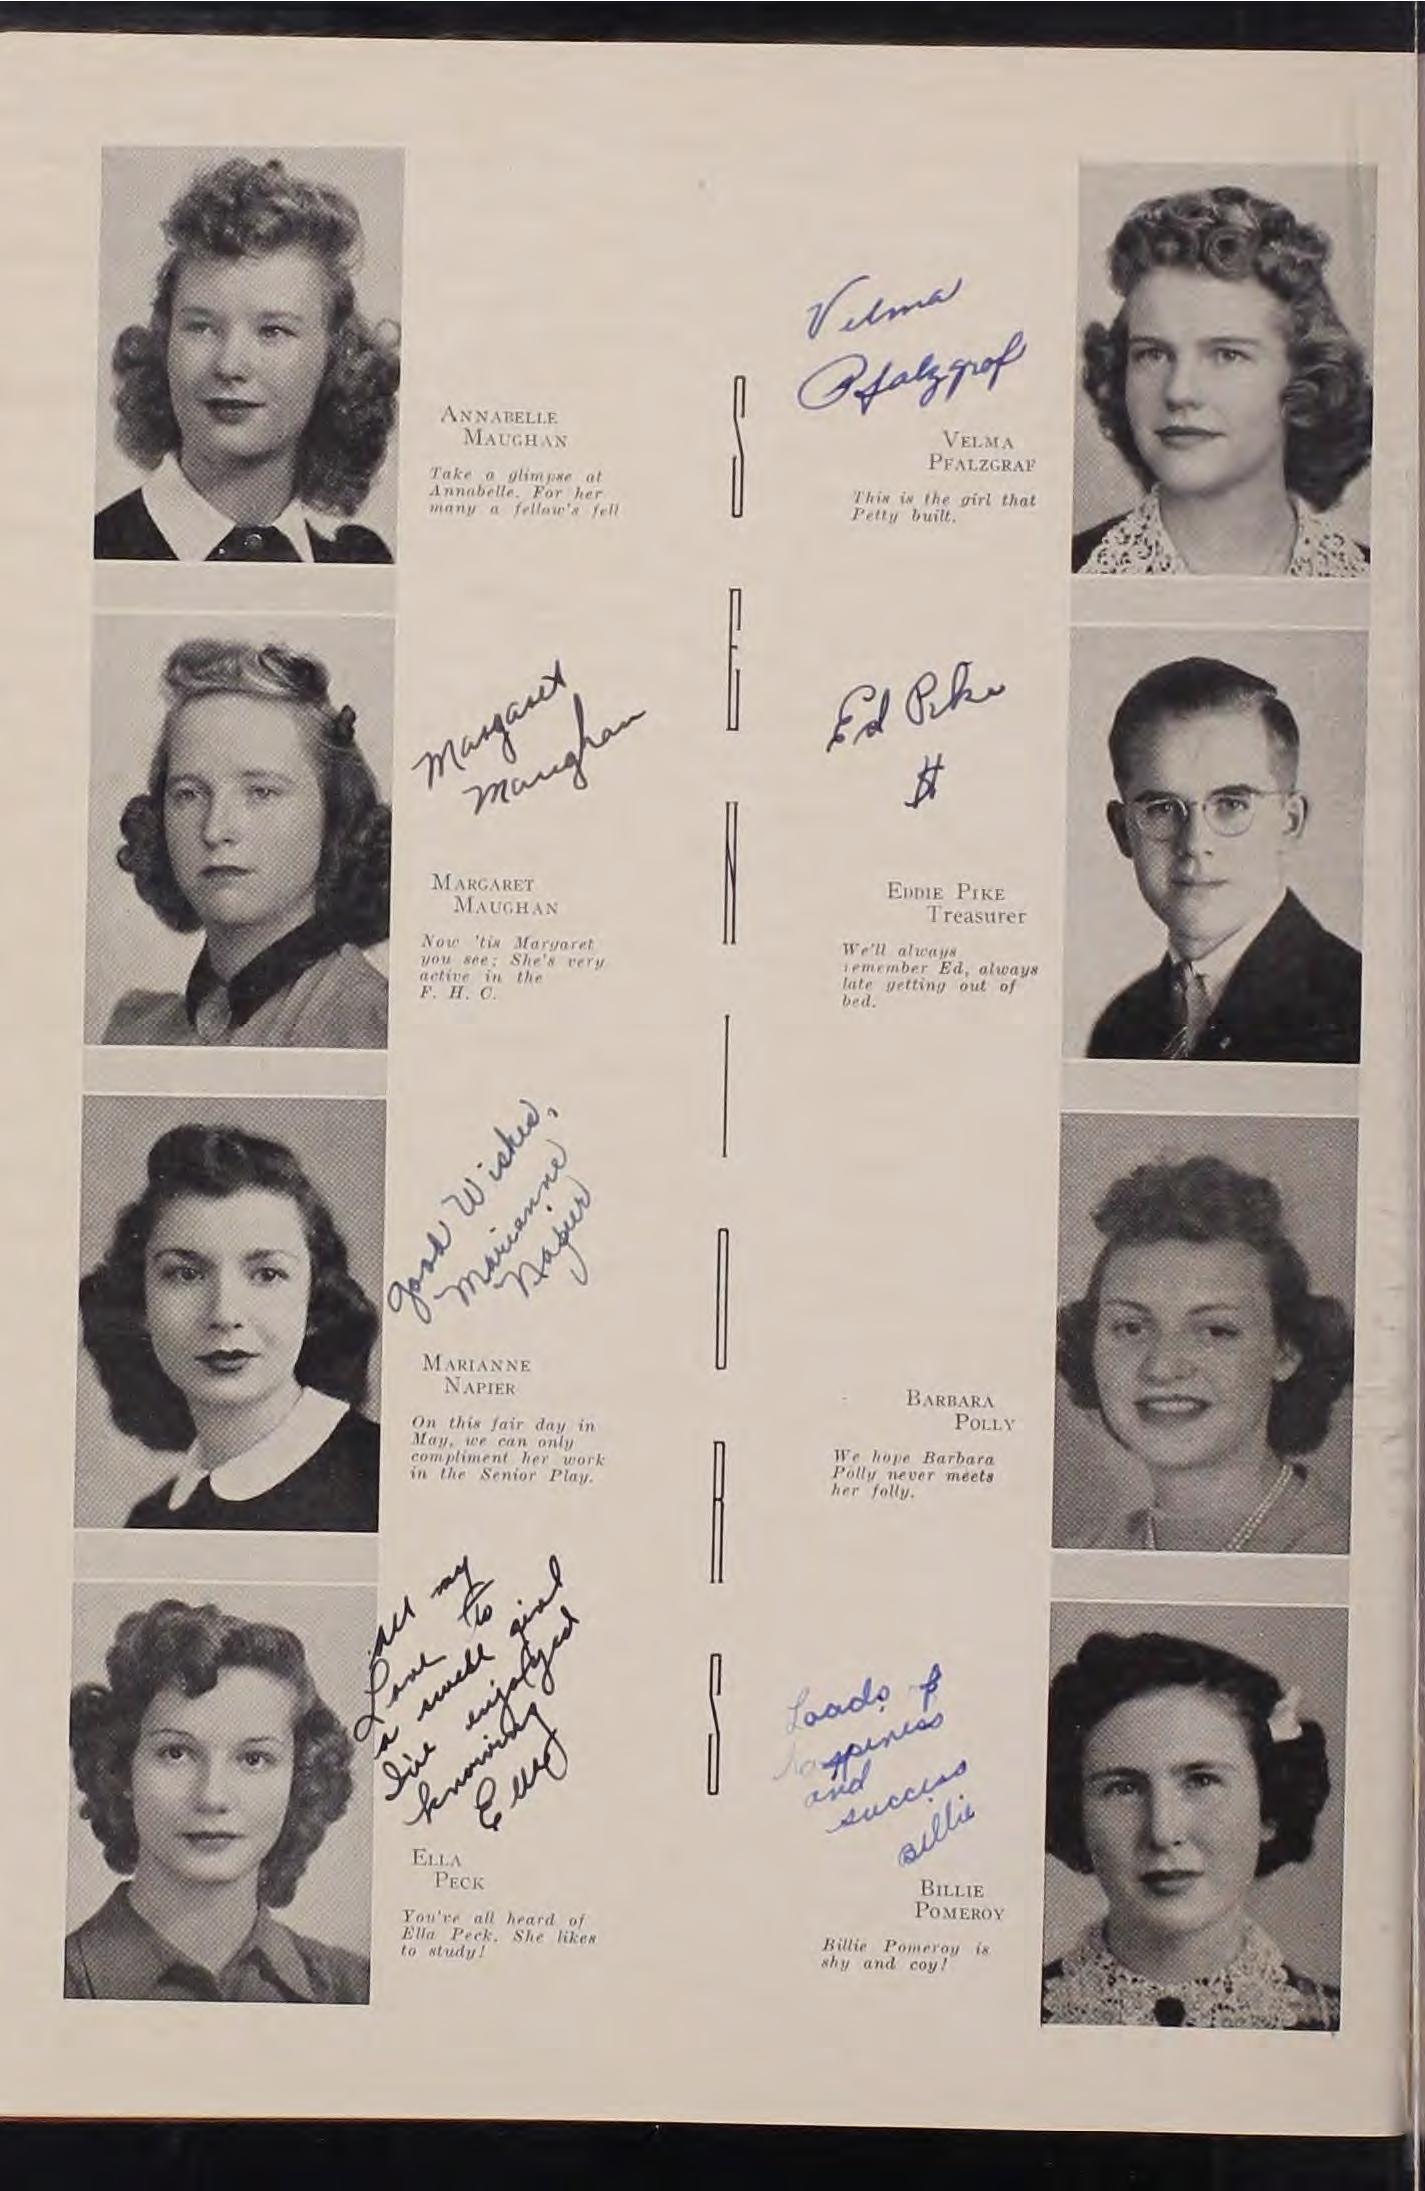 ANNABELLE
MAUGHAN
Take a glimpse at
Annabelle. For her
many a fellow's fell
Margaret
Maughan
MARGARET
MAUGHAN
Now 'tis Margaret
you see; She's very
active in the
F. H. C.
Good Wishes,
Marianne
Napier
MARIANNE
NAPIER
On this fair day in
May, we can only
compliment her work
in the Senior Play.
All my
Love to
a swell girl
I've enjoyed
knowing
Ella
ELLA
PECK
You've all heard of
Ella Peck. She likes
to study!
SENIORS
Velma
Pfalzgraf
VELMA
PFALZGRAF
This is the girl that
Petty built.
Ed Pike
$
EDDIE PIKE
Treasurer
We'll always
remember Ed, always
late getting out of
bed.
BARBARA
POLLY
We hope Barbara
Polly never meets
her folly.
Loads of
happiness
and
success
Billie
BILLIE
POMEROY
Billie Pomeroy is
shy and coy!